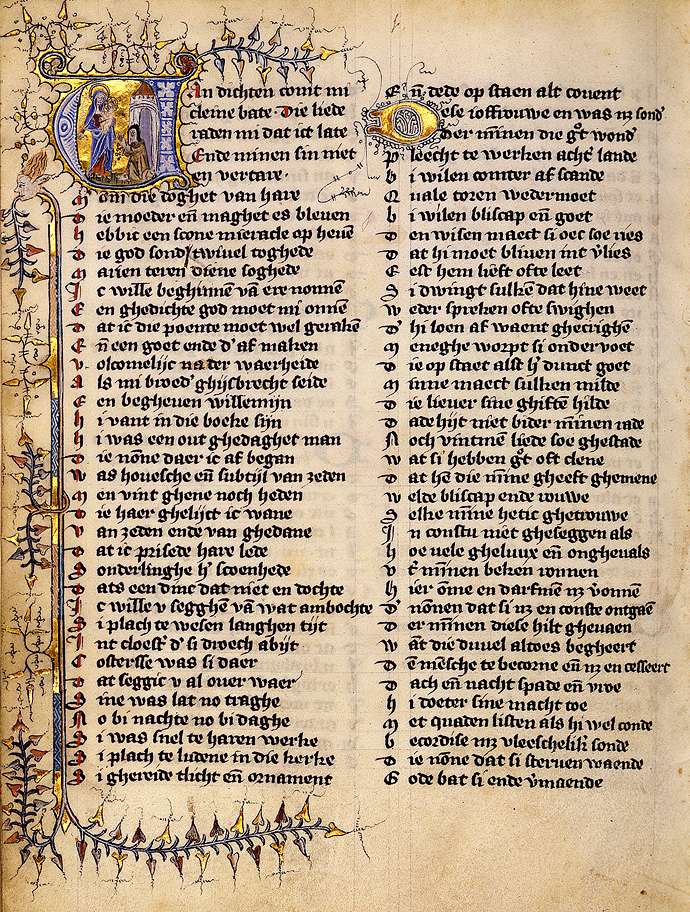 Van dichten comt mi
cleine bate. Die liede
raden mi dat ict late
Ende minen sin niet
en vertare.
Om die doghet van hare
Die moeder eñ maghet es bleuen
Hebbic een scone mieracle op heuē
Die god sond' twiuel toghede
Marien teren diene soghede
Ic wille beghinnē vā ere nonnē
Een ghedichte god moet mi onnē
Dat ic die poente moet wel geraken
Eñ een goet ende d' af maken
Volcomelijc na der waerheide
Als mi broed' ghijsbrecht seide
Een begheuen willemijn
Hi vant in die boeke sijn
Hi was een out ghedaghet man
Die nōne daer ic af began
Was houesche eñ subtijl van zeden
Men vint ghene noch heden
Die haer ghelijct ic wane
Van zeden ende van ghedane
Dat ic prisede hare lede
Sonderlinghe h' scoenhede
Dats een dinc dat niet en dochte
Ic wille v segghē vā wat ambochte
Si plach te wesen langhen tijt
Int cloest' d' si droech abijt
Costersse was si daer
Dat seggic v al ouer waer
Sine was lat no traghe
No bi nachte no bi daghe
Si was snel te haren werke
Si plach te ludene in die kerke
Si ghereide tlicht eñ ornament
Eñ dede op staen alt couent
Dese ioffrouwe en was nz sond'
Der mīnen die g't wond'
Pleecht te werken acht' lande
Bi wilen comter af scande
Quale toren wedermoet
Bi wilen bliscap eñ goet
Den wisen maect si oec soe ries
Dat hi moet bliuen int v'lies
Eest hem lieft ofte leet
Si dwingt sulken dat hine weet
Weder spreken ofte swighen
D' hi loen af waent ghecrighē
Meneghe worpt si onder voet
Die op staet alst h' dunct goet
Minne maect sulken milde
Die lieuer sine ghiften hilde
Dade hijt niet bider mīnen rade
Noch vintmen liede soe ghestade
Wat si hebben g't oft clene
Dat hē die mīne gheeft ghemene
Welde bliscap ende rouwe
Selke mīne hetic ghetrouwe
In constu niet gheseggen als
Hoe vele gheluux eñ onghevals
Vt' mīnen beken ronnen
Hier ōme en darfmē nz v'onnē
D' nōnen dat si nz en conste ontgaē
Der mīnen diese hilt gheuaen
Wāt die duuel altoes begheert
Dē mēsche te becorne eñ nz en cesseert
Dach eñ nacht spade eñ vroe
Hi doeter sine macht toe
Met quaden listen als hi wel conde
Becordise mz vleescheliker sonde
Die nōne dat si steruen waende
Gode bat si ende v'maende